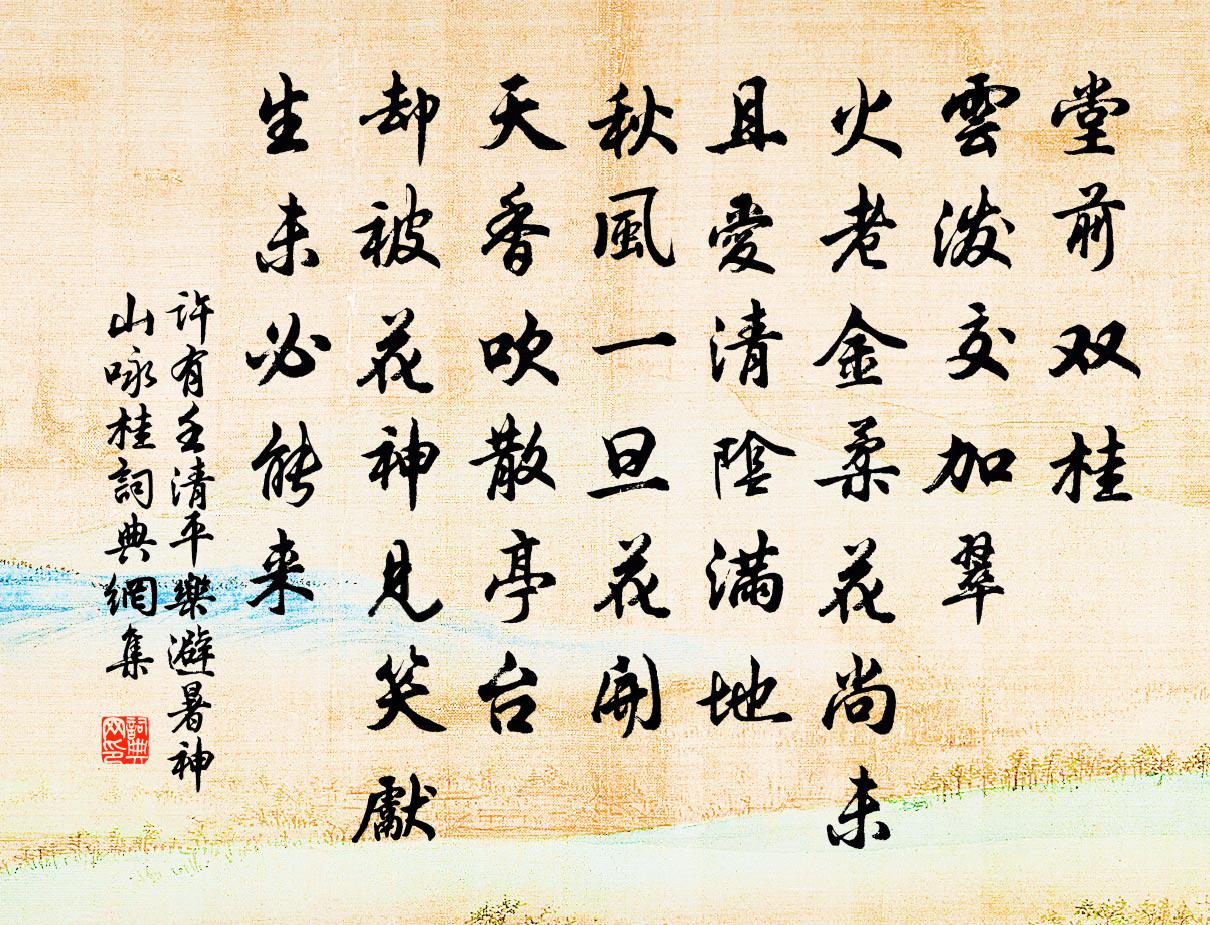 堂前双桂
雲泼交加翠
火老金柔花尚未
且愛清陰滿地
秋風一旦花開
天香吹散亭台
却被花神見笑獻
生未必能来
許有壬清平樂避暑神
山咏桂詞典網集
詞典网印